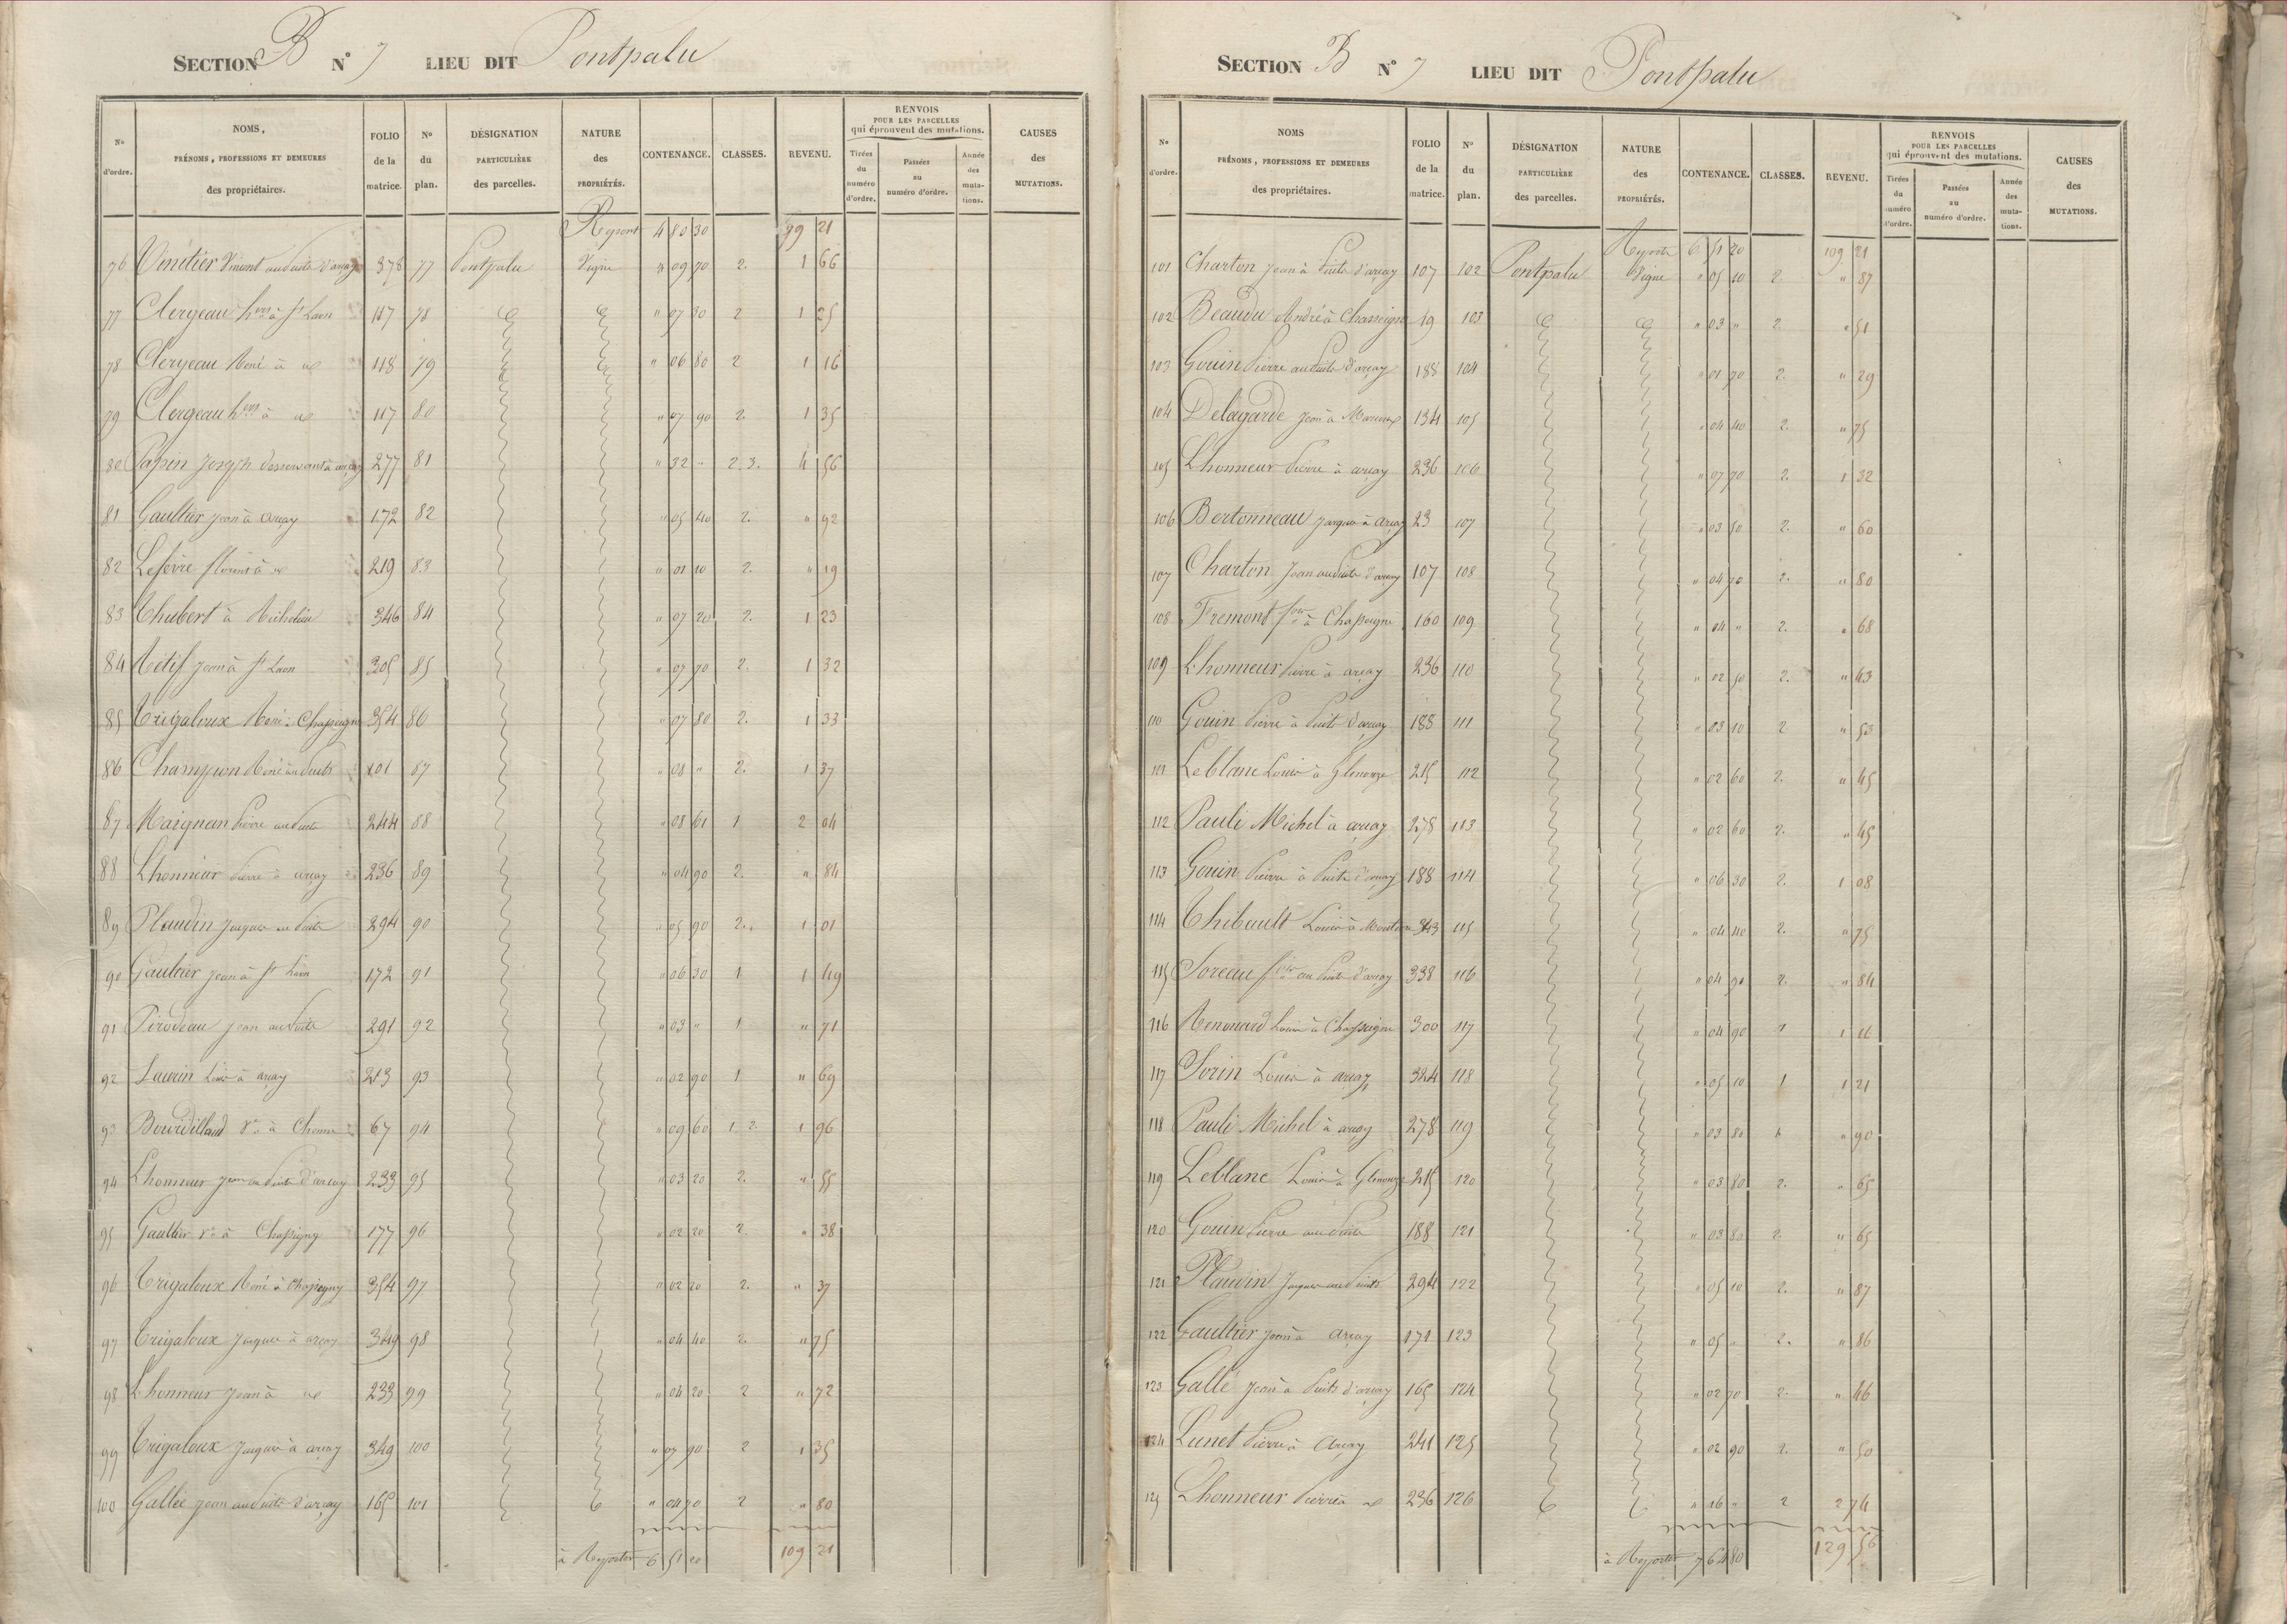 SECTION B N° 7 LIEU DIT Pontpalu
N° d'ordre. NOMS, PRÉNOMS, PROFESSIONS ET DEMEURES des propriétaires. FOLIO de la matrice. N° du plan. DÉSIGNATION PARTICULIÈRE des parcelles. NATURE des PROPRIÉTÉS. CONTENANCE. CLASSES. REVENU. RENVOIS POUR LES PARCELLES qui éprouvent des mutations. Tirées du numéro d'ordre. Passées au numéro d'ordre. Année des mutations. CAUSES des MUTATIONS.
Report 4 80 30 99 21
76 Vinetier Vincent au Puits d'arçay 378 77 Pontpalu Vigne " 09 70 2. 1 66
77 Clergeau hers à St Laon 117 78 " 07 30 2 1 25
78 Clergeau René à 118 79 " 06 80 2 1 16
79 Clergeau hers à 117 80 " 07 90 2. 1 35
80 Papin Joseph desservant à arçay 277 81 " 32 " 2. 3. 4 56
81 Gaultier Jean à arçay 172 82 " 05 40 2. " 92
82 Lefévre florent à 219 83 " 01 10 2. " 19
83 Thubert à Richelieu 346 84 " 07 20 2. 1 23
84 Rétif Jean à St Laon 305 85 " 07 70 2. 1 32
85 Trigaloux René à Chasseigne 354 86 " 07 80 2. 1 33
86 Champion René au Puits 101 87 " 08 " 2. 1 37
87 Maignan Pierre au Puits 244 88 " 08 61 1 2 04
88 Lhonneur Pierre à arçay 236 89 " 04 90 2. " 84
89 Plaudin Jacques au Puits 294 90 " 05 90 2. 1 01
90 Gaultier Jean à St Laon 172 91 " 06 30 1 1 49
91 Pérodeau Jean au Puits 291 92 " 03 " 1 " 71
92 Laurin Louis à arçay 213 93 " 02 90 1 " 69
93 Bourdilland Ve à 67 94 " 09 60 1. 2. 1 96
94 Lhonneur Jean au Puits d'arçay 233 95 " 03 20 2. " 55
95 Gaultier Ve à Chassigny 177 96 " 02 20 2. " 38
96 Trigaloux René à Chassigny 354 97 " 02 20 2. " 37
97 Trigaloux Jacques à arçay 349 98 " 04 40 2. " 75
98 Lhonneur Jean à 233 99 " 04 20 2 " 72
99 Trigaloux Jacques à arçay 349 100 " 07 90 2 1 35
100 Gallée Jean au Puits d'arçay 165 101 " 04 70 2 " 80
à Reporter 6 51 20 109 21
SECTION B N° 7 LIEU DIT Pontpalu
N° d'ordre. NOMS PRÉNOMS, PROFESSIONS ET DEMEURES des propriétaires. FOLIO de la matrice. N° du plan. DÉSIGNATION PARTICULIÈRE des parcelles. NATURE des PROPRIÉTÉS. CONTENANCE. CLASSES. REVENU. RENVOIS POUR LES PARCELLES qui éprouvent des mutations. Tirées du numéro d'ordre. Passées au numéro d'ordre. Année des mutations. CAUSES des MUTATIONS.
Report 6 51 20 109 21
101 Charton Jean à Puits d'arçay 107 102 Pontpalu Vigne " 05 10 2 " 87
102 Beaudu André à Chasseigne 19 103 " 03 " 2. " 51
103 Gouin Pierre au Puits d'arçay 188 104 " 01 70 2. " 29
104 Delagarde Jean à 134 105 " 04 40 2. " 75
105 Lhonneur Pierre à arçay 236 106 " 07 70 2. 1 32
106 Bertonneau Jacques à arçay 23 107 " 03 50 2. " 60
107 Charton Jean au Puits d'arçay 107 108 " 04 70 2. " 80
108 Fremont fois à Chasseigne 160 109 " 04 " 2. " 68
109 Lhonneur Pierre à arçay 236 110 " 02 50 2. " 43
110 Gouin Pierre à Puits d'arçay 188 111 " 03 10 2 " 53
111 Leblanc Louis à Glenouze 215 112 " 02 60 2. " 45
112 Pauli Michel à arçay 278 113 " 02 60 2. " 45
113 Gouin Pierre à Puits d'arçay 188 114 " 06 30 2. 1 08
114 Thibault Louis à 343 115 " 04 40 2. " 75
115 Soreau fois au Puits d'arçay 338 116 " 04 90 2. " 84
116 Renouard Louis à Chasseigne 300 117 " 04 90 1 1 16
117 Sorin Louis à arçay 324 118 " 05 10 1 1 21
118 Pauli Michel à arçay 278 119 " 03 80 1 " 90
119 Leblanc Louis à Glenouze 215 120 " 03 80 2. " 65
120 Gouin Pierre au Puits 188 121 " 03 80 2. " 65
121 Plaudin Jacques au Puits 294 122 " 05 10 2. " 87
122 Gaultier Jean à arçay 171 123 " 05 " 2. " 86
123 Gallé Jean à Puits d'arçay 165 124 " 02 70 2. " 46
124 Lunet Pierre à arçay 241 125 " 02 90 2. " 50
125 Lhonneur Pierre à 236 126 " 16 " 2 2 74
à Reporter 7 64 80 129 56